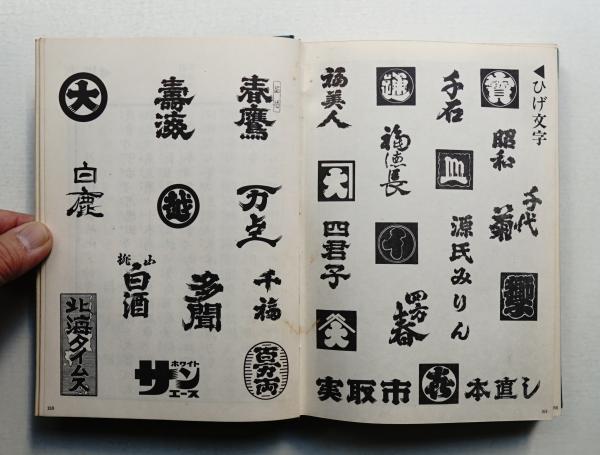 ひげ文字
寶
昭和
千代菊
千石
源氏みりん
福徳長
四方春
福美人
大
四君子
大
実取市
本直し
春鷹
万点
千福
百万両
壽海
越
多聞
ホワイト
サン
エース
大
白鹿
桃山
白酒
北海タイムス